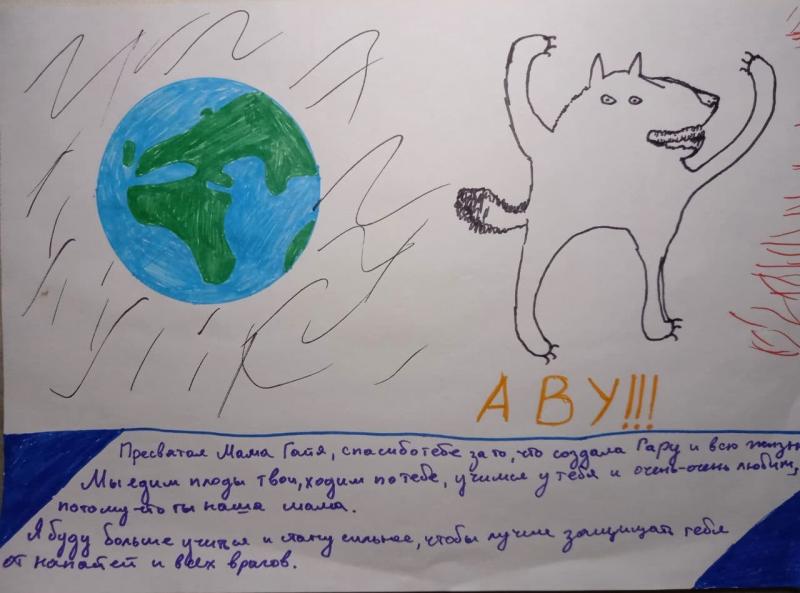 АВУ!!!
Пресвятая Мама Гайя, спасибо тебе за то, что создала Гару и всю жизнь
Мы едим плоды твои, ходим по тебе, учимся у тебя и очень-очень любим,
потому-что ты наша мама.
Я буду больше учиться и стану сильнее, чтобы лучше защищать тебя
от напастей и всех врагов.